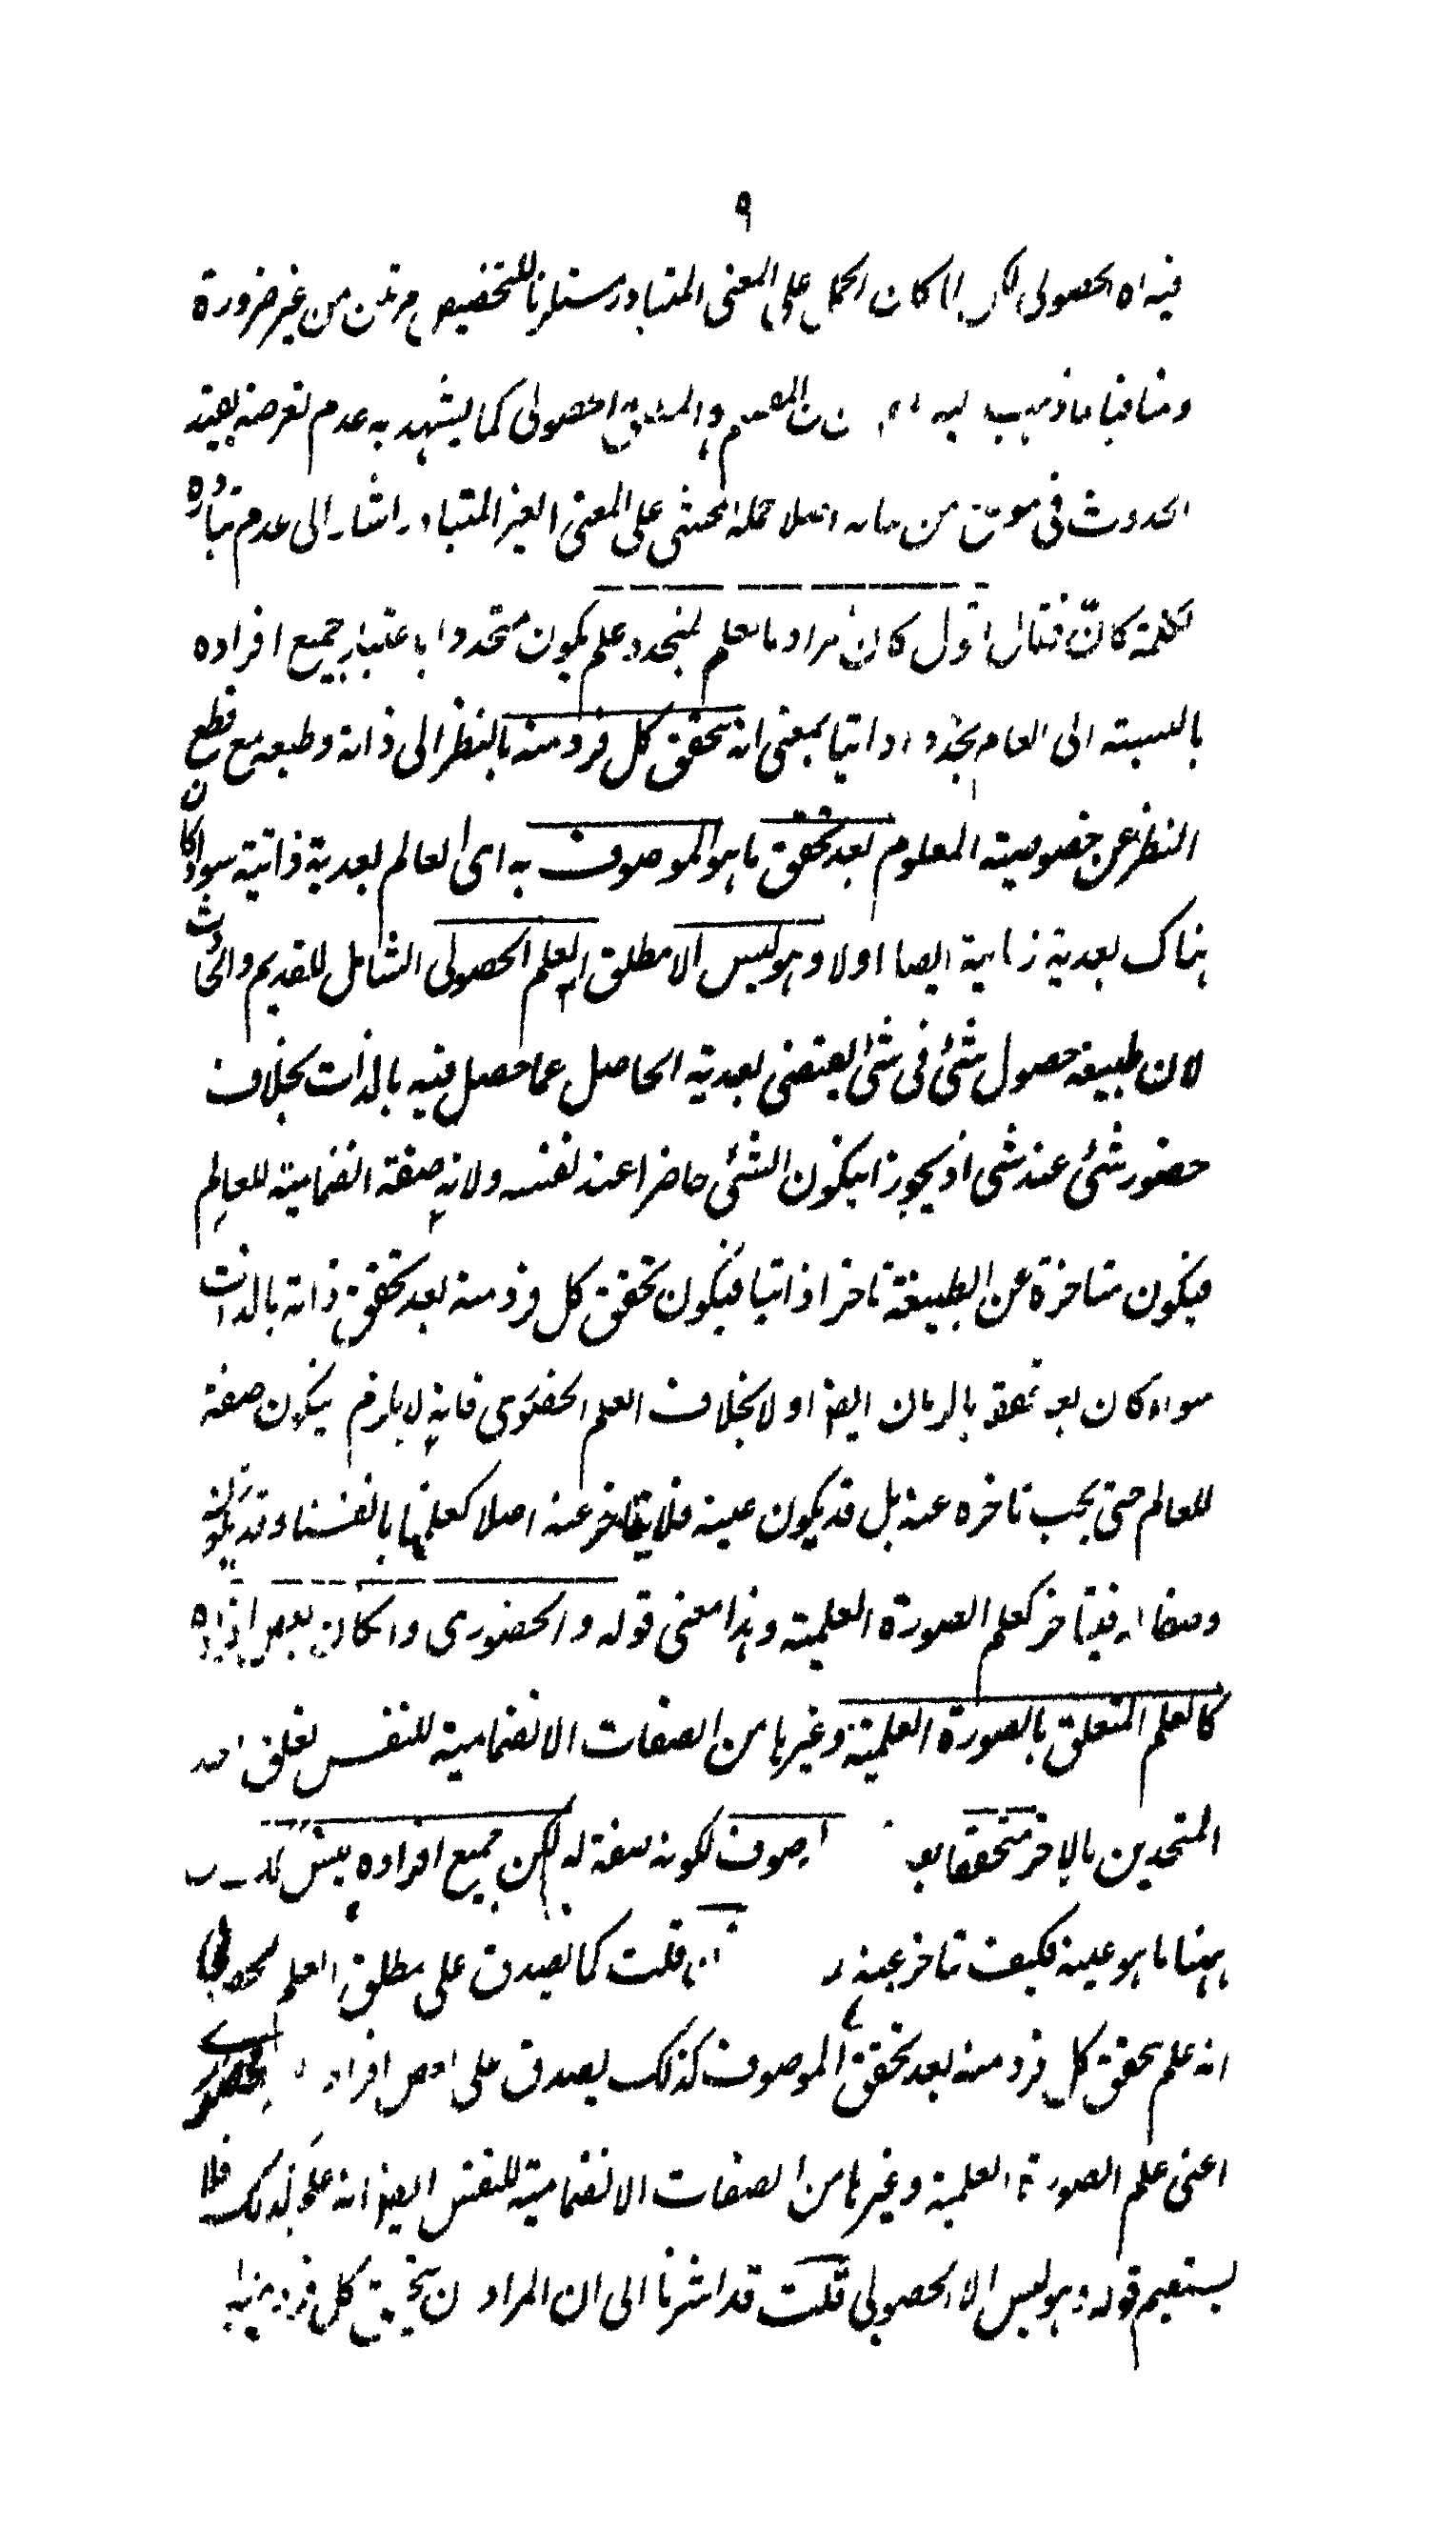 ٩
فيه اه الحصولى لكن لما كان الحمل على المعنى المتبادر مستلزما للتخصيص مرتين من غير ضرورة
ومنافيا لما ذهب اليه من المقسم هو الحصولى كما يشهد به عدم تعرضه بقيد
الحدوث فى من حمله المحشى على المعنى الغير المتبادر اشار الى عدم تبادره
بكلمة كانّ فقال اقول كان مراده بالعلم المتجدد علم يكون متجددا باعتبار جميع افراده
بالنسبة الى العالم تجددا ذاتيا بمعنى انه تحقق كل فرد منه بالنظر الى ذاته وطبعه مع قطع
النظر عن خصوصية المعلوم بعد تحقق ما هو الموصوف به اى العالم بعدية ذاتية سواء كان
هناك بعدية زمانية ايضا اولا وهو ليس الا مطلق العلم الحصولى الشامل للقديم والحادث
لان طبيعة حصول شئ فى شئ يقتضى بعدية الحاصل عما حصل فيه بالذات بخلاف
حضور شئ عند شى اذ يجوز ان يكون الشئ حاضرا عند نفسه ولانه صفة انضمامية للعالم
فيكون متاخرة عن الطبيعة تاخرا ذاتيا فيكون تحقق كل فرد منه بعد تحقق ذاته بالذات
سواء كان بعد تحققه بالزمان ايضا اولا بخلاف العلم الحضورى فانه لا يلزم ان يكون صفة
للعالم حتى يجب تاخره عنه بل قد يكون عينه فلا يتاخر عنه اصلا كعلمنا بانفسنا وقد يكون
وصفا له فيتاخر كعلم الصورة العلمية وهذا معنى قوله والحضورى وان كان بعض افراده
كالعلم المتعلق بالصورة العلمية وغيرها من الصفات الانضمامية للنفس لتعلق احد
المتحدين بالاخر متحققا بعد الموصوف لكونه صفة له لكن جميع افراده ليس كذلك
ههنا ما هو عينه فكيف تاخر عنه فان قلت كما يصدق على مطلق العلم الحصولى
انه علم تحقق كل فرد منه بعد تحقق الموصوف كذلك يصدق على اخص افراد الحضورى
اعنى علم الصورة العلمية وغيرها من الصفات الانضمامية للنفس ايضا انه علم كذلك فلا
يستقيم قوله وهو ليس الا الحصولى قلت قد اشرنا الى ان المراد من تحقق كل فرد منه